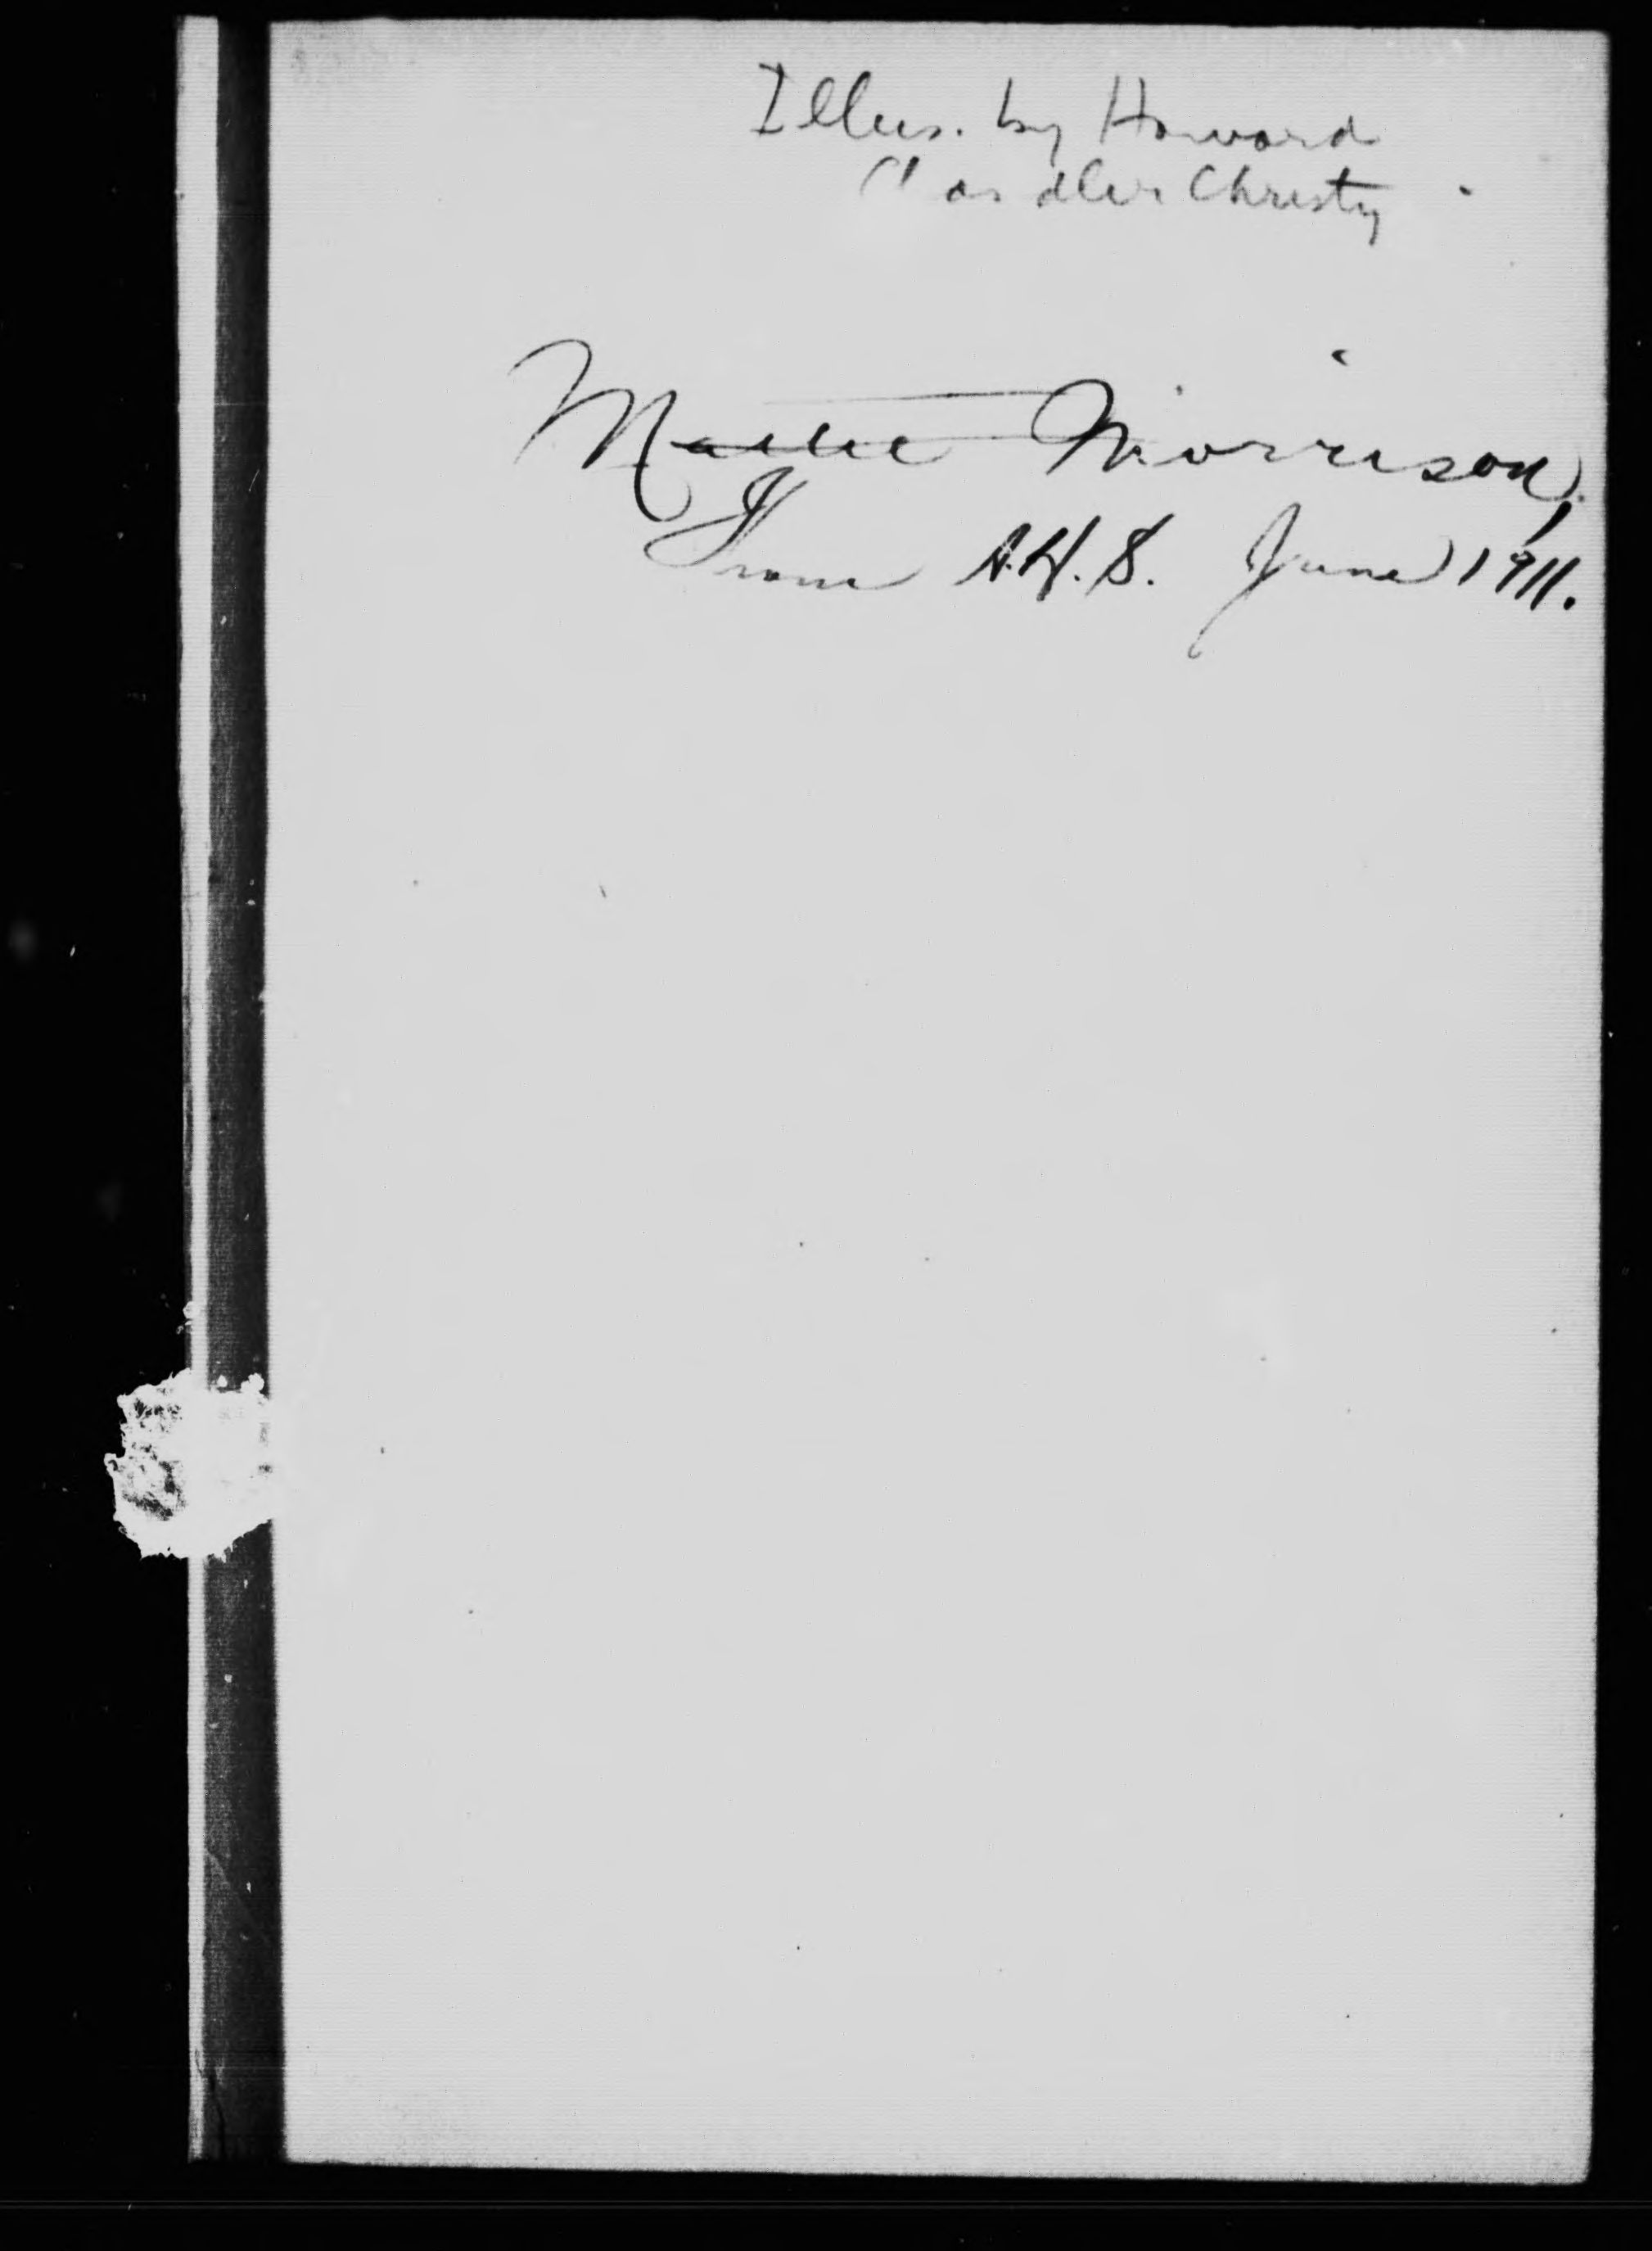 Illus. by Howard
Chandler Christy
Mattie Morrison,
From A.H.S. June 1911.